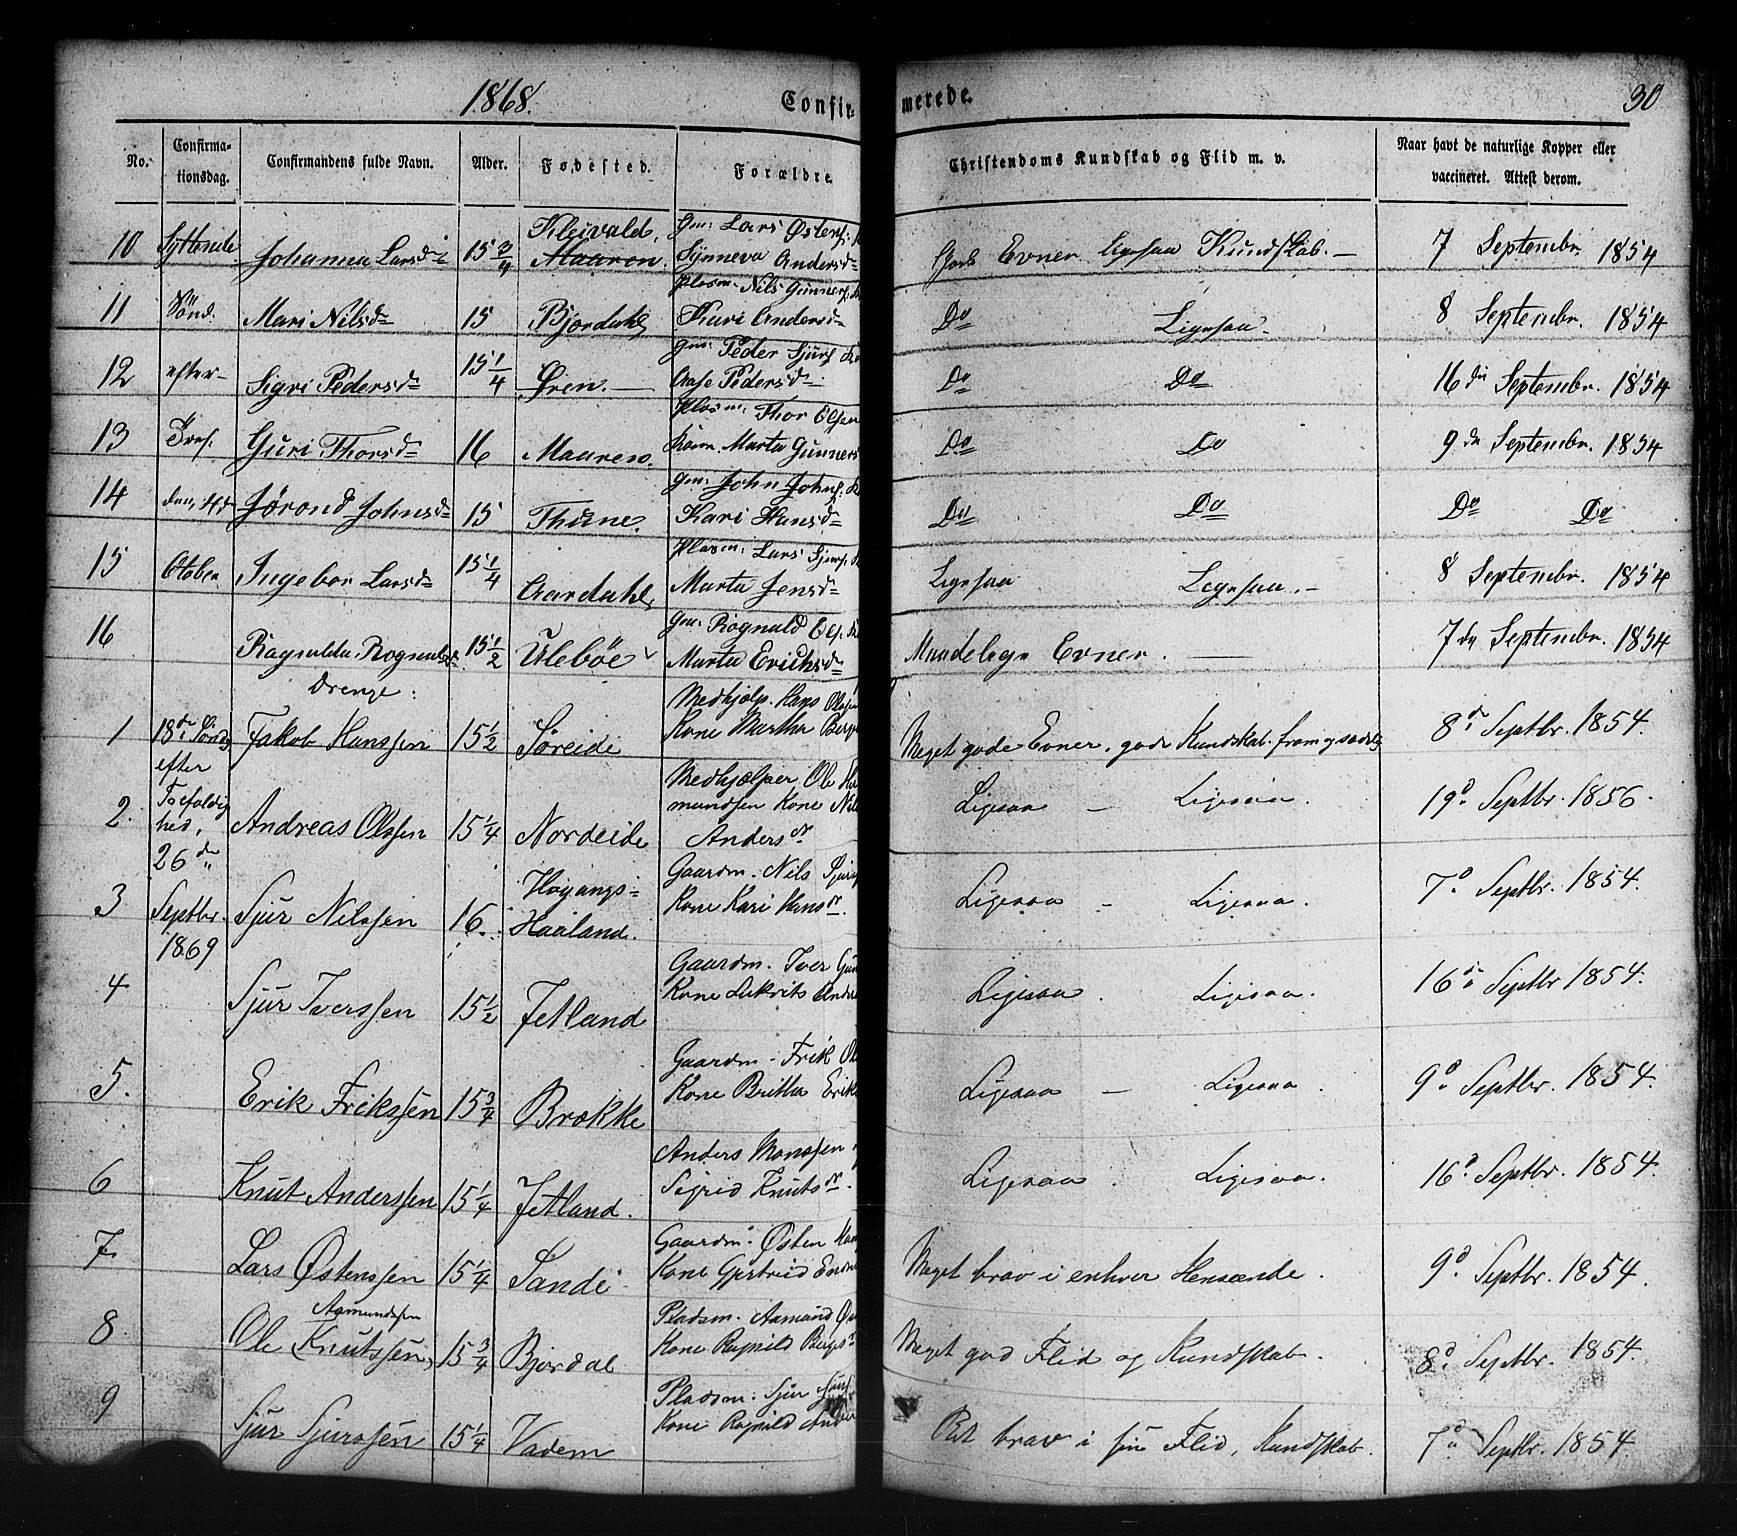 1868.
Confir-
merede.
30
No.
Confirma-
tionsdag.
Confirmandens fulde Navn.
Alder.
Fødested.
Forældre.
Christendoms Kundskab og Flid m. v.
Naar havt de naturlige Kopper eller
vaccineret. Attest derom.
10 Johanna Larsd 15 3/4 Kleivald, Maaren. Gm: Lars Østens:
Synneva Andersd
Gode Evner Ligesaa Kundskab. — 7 Septembr. 1854
11 Sönd. Mari Nilsd 15 Bjordahl Plasm: Nils Gunners:
Kari Andersd
Do Ligesaa. 8 Septembr. 1854
12 efter- Sigri Pedersd 15 1/4 Øren. — Gm: Peder Sjurs:
Aase Pedersd
Do Do 16 de Septembr. 1854
13 Guri Thorsd 16 Maaren. Plasm: Thor
Marta Gunners
Do Do 9 de Septembr. 1854
14 Jørond Johnsd 15 Thune. Gm: John Johns:
Kari Hansd
Do Do Do Do
15 Otober Ingebor Larsd 15 1/4 Aardahl Plasm: Lars Sjurs:
Marta Jensd
Ligesaa Ligesaa. — 8 Septembr. 1854
16 Ragnilda Rognalds 15 1/2 Ulebøe Gm: Rognald
Marta Erichsd
Maadelige Evner. — 7 de Septembr. 1854
Drenge:
1 18 de Sönd. Jakob Hanssen 15 1/2 Søreide Medhjælp. Hans Olssen
Kone Martha
Meget gode Evner, gode Kundskab. from og sædelig 8 de Septbr. 1854.
efter
Trefoldig
hed,
26 de
2. Andreas Olssen 15 1/4 Nordeide Medhjælper Ole
mundsen Kone
Anders dr
Ligesaa — Ligesaa. 19 d. Septbr. 1856.
3 Septbr. Sjur Nilssen 16. Høyangs-
Haaland. Gaardm. Nils
Kone Kari Hans dr.
Ligesaa — Ligesaa. 7 d. Septbr. 1854.
1869
4 Sjur Iverssen 15 1/2 Jetland Gaardm. Iver
Kone
Ligesaa. Ligesaa. 16 d. Septbr 1854.
5. Erik Erikssen 15 3/4 Brække Gaardm. Erik
Kone Britha
Ligesaa — Ligesaa. 9 d. Septbr. 1854.
6 Knut Anderssen 15 1/4 Jetland. Anders Monssen
Sigrid Knuts dr.
Ligesaa. Ligesaa. 16 d. Septbr. 1854.
7. Lars Østenssen 15 1/4 Sande Gaardm: Østen
Kone Gjertrud
Meget brav i enhver Henseende. 9 d. Septbr. 1854.
8. Ole Asmundsen
Knutssen, 15 3/4 Bjordal Pladsm. Asmund
Kone Ragnild
Meget god Flid og Kundskab. 8 d. Septbr. 1854.
9 Sjur Sjurssen 15 1/4 Vadem Pladsm: Sjur
Kone Ragnild
Ret brav i sin Flid, Kundskab. 7 d. Septbr. 1854.